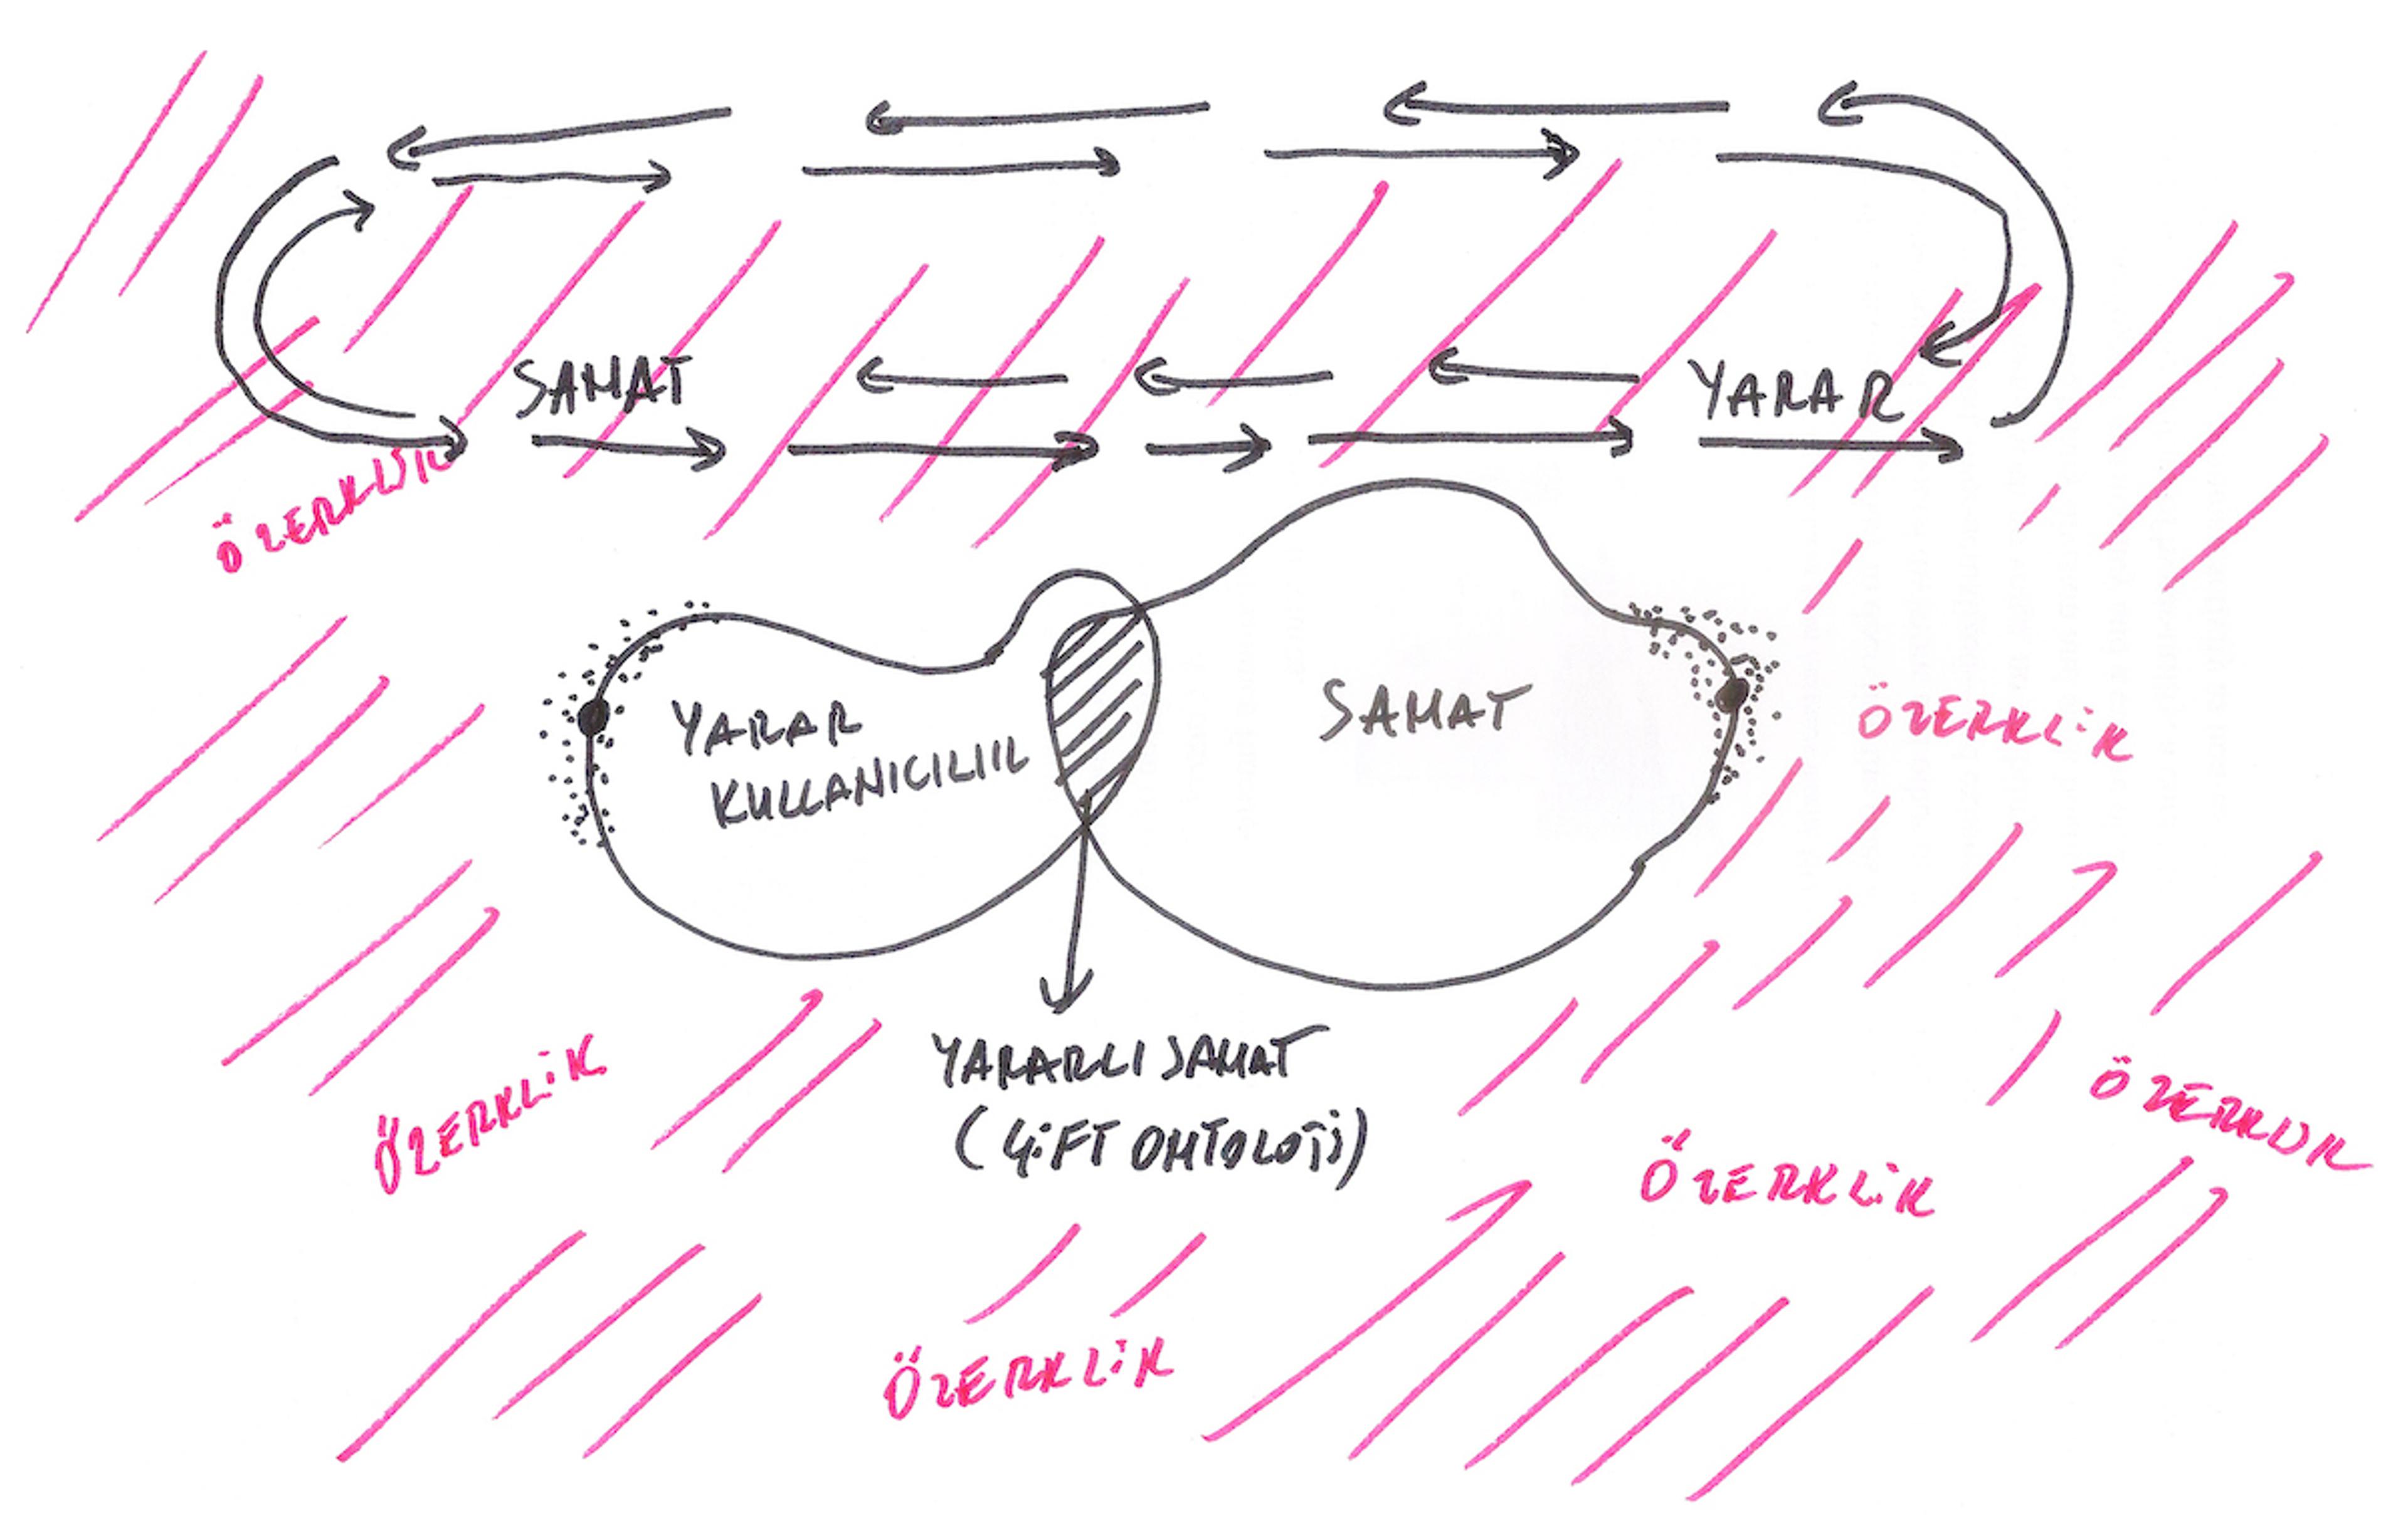 SANAT
YARAR
ÖZERKLİK
YARAR
KULLANICILIK
SANAT
ÖZERKLİK
YARARLI SANAT
(ÇİFT ONTOLOJİ)
ÖZERKLİK
ÖZERKLİK
ÖZERKLİK
ÖZERKLİK